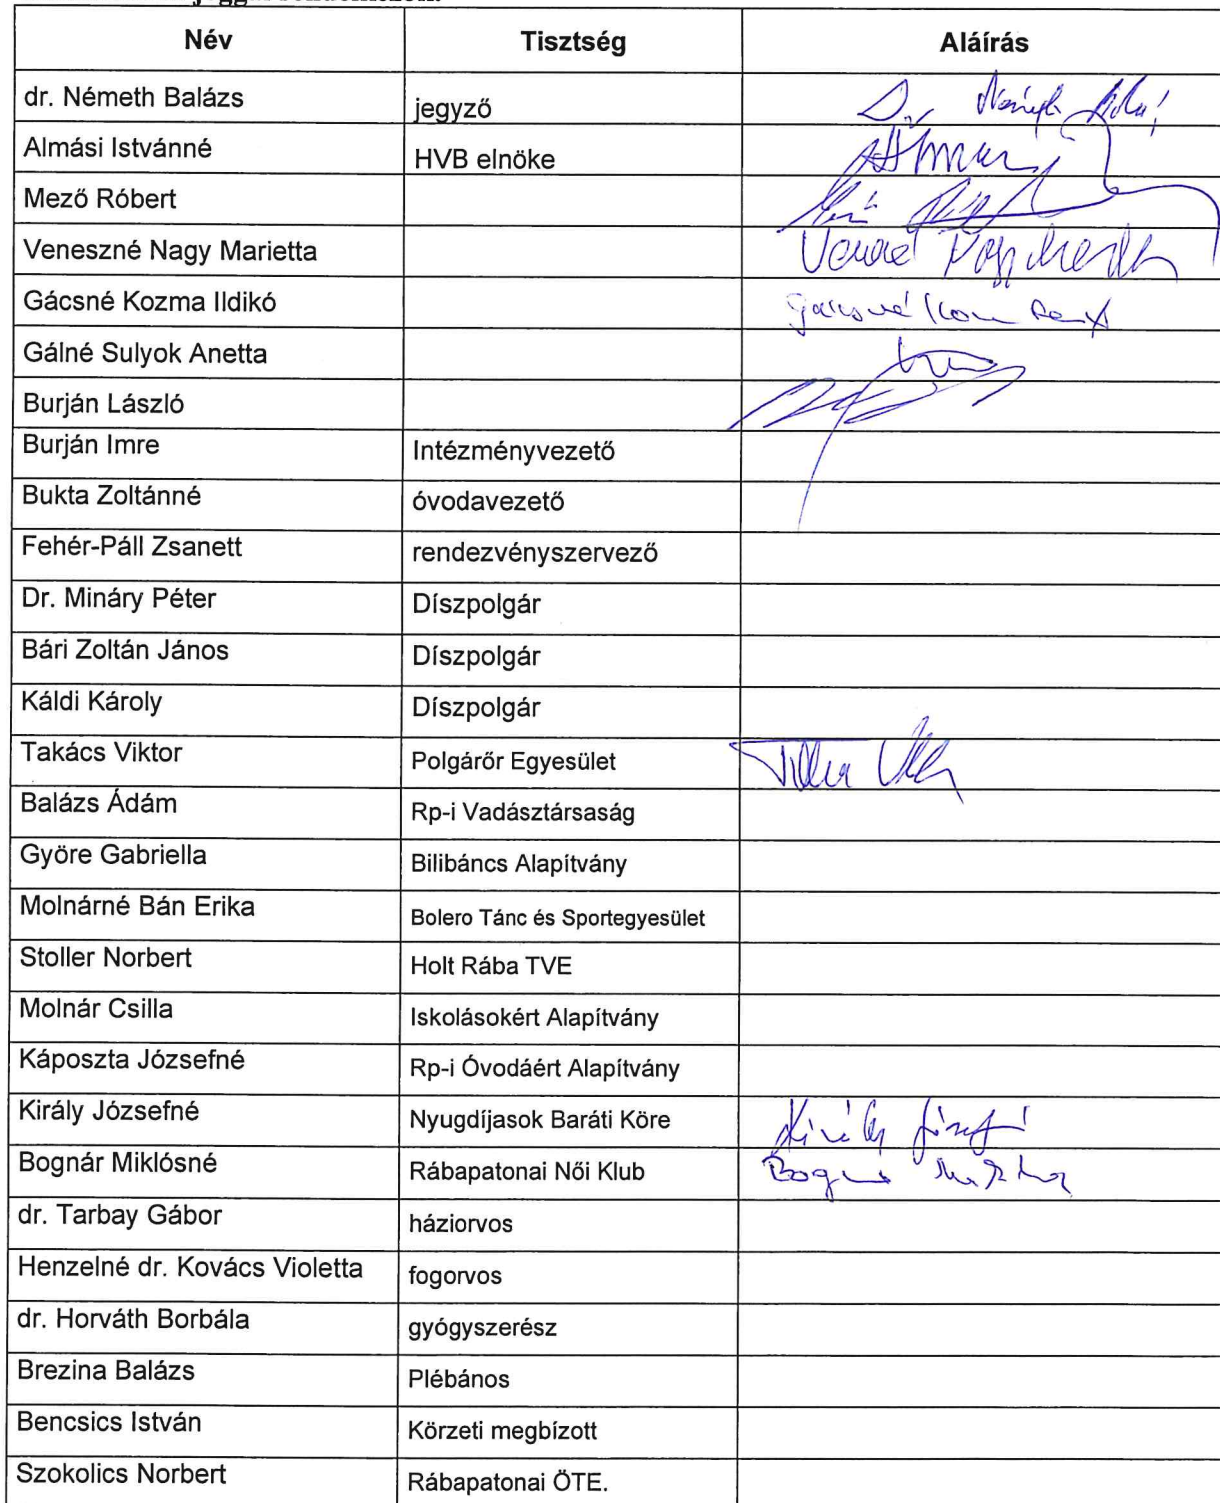 Név Tisztség Aláírás
dr. Németh Balázs jegyző
Almási Istvánné HVB elnöke
Mező Róbert
Veneszné Nagy Marietta
Gácsné Kozma Ildikó
Gálné Sulyok Anetta
Burján László
Burján Imre Intézményvezető
Bukta Zoltánné óvodavezető
Fehér-Páll Zsanett rendezvényszervező
Dr. Mináry Péter Díszpolgár
Bári Zoltán János Díszpolgár
Káldi Károly Díszpolgár
Takács Viktor Polgárőr Egyesület
Balázs Ádám Rp-i Vadásztársaság
Györe Gabriella Bilibáncs Alapítvány
Molnárné Bán Erika Bolero Tánc és Sportegyesület
Stoller Norbert Holt Rába TVE
Molnár Csilla Iskolásokért Alapítvány
Káposzta Józsefné Rp-i Óvodáért Alapítvány
Király Józsefné Nyugdíjasok Baráti Köre
Bognár Miklósné Rábapatonai Női Klub
dr. Tarbay Gábor háziorvos
Henzelné dr. Kovács Violetta fogorvos
dr. Horváth Borbála gyógyszerész
Brezina Balázs Plébános
Bencsics István Körzeti megbízott
Szokolics Norbert Rábapatonai ÖTE.